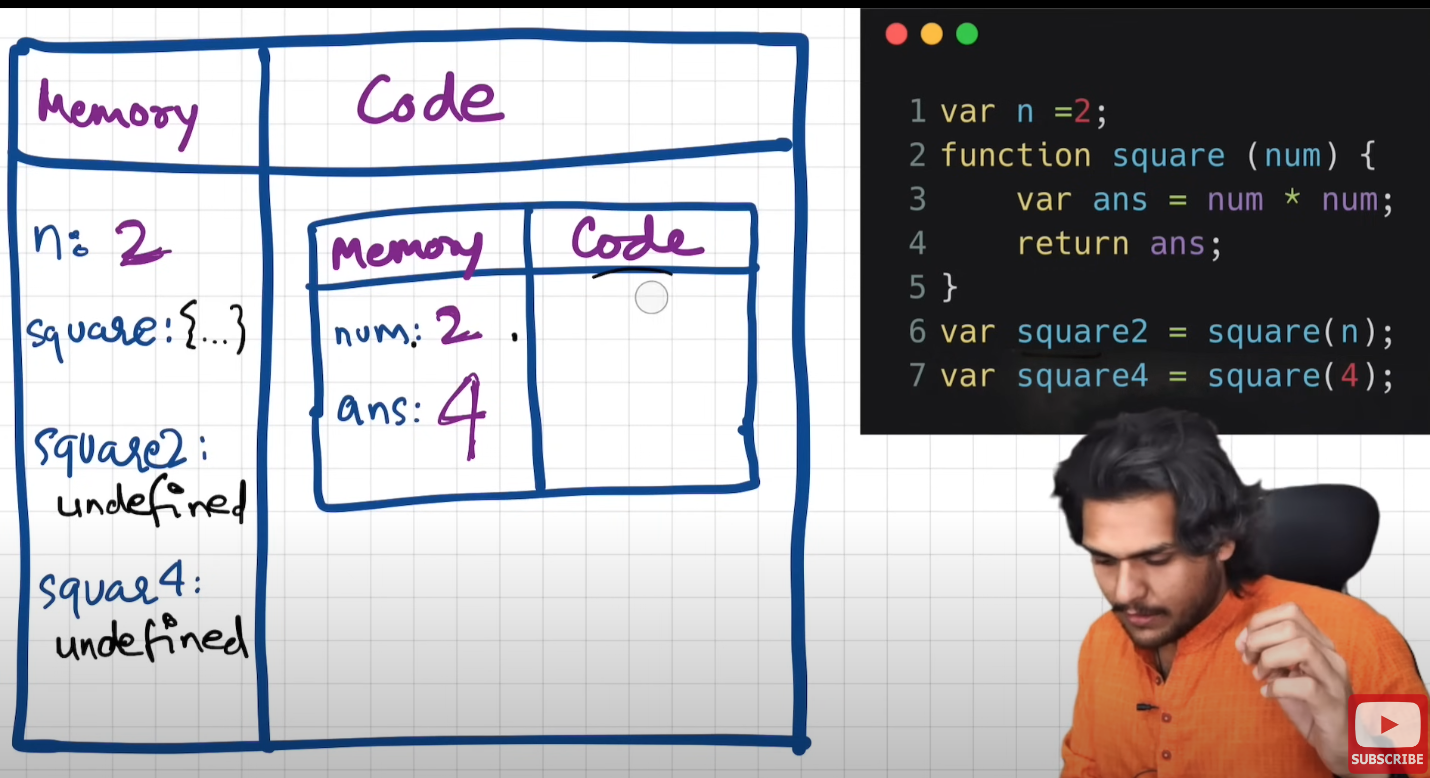 Memory
Code
n: 2
square: {...}
square2:
undefined
squar4:
undefined
Memory
Code
num: 2
ans: 4
1 var n =2;
2 function square (num) {
3     var ans = num * num;
4     return ans;
5 }
6 var square2 = square(n);
7 var square4 = square(4);
SUBSCRIBE